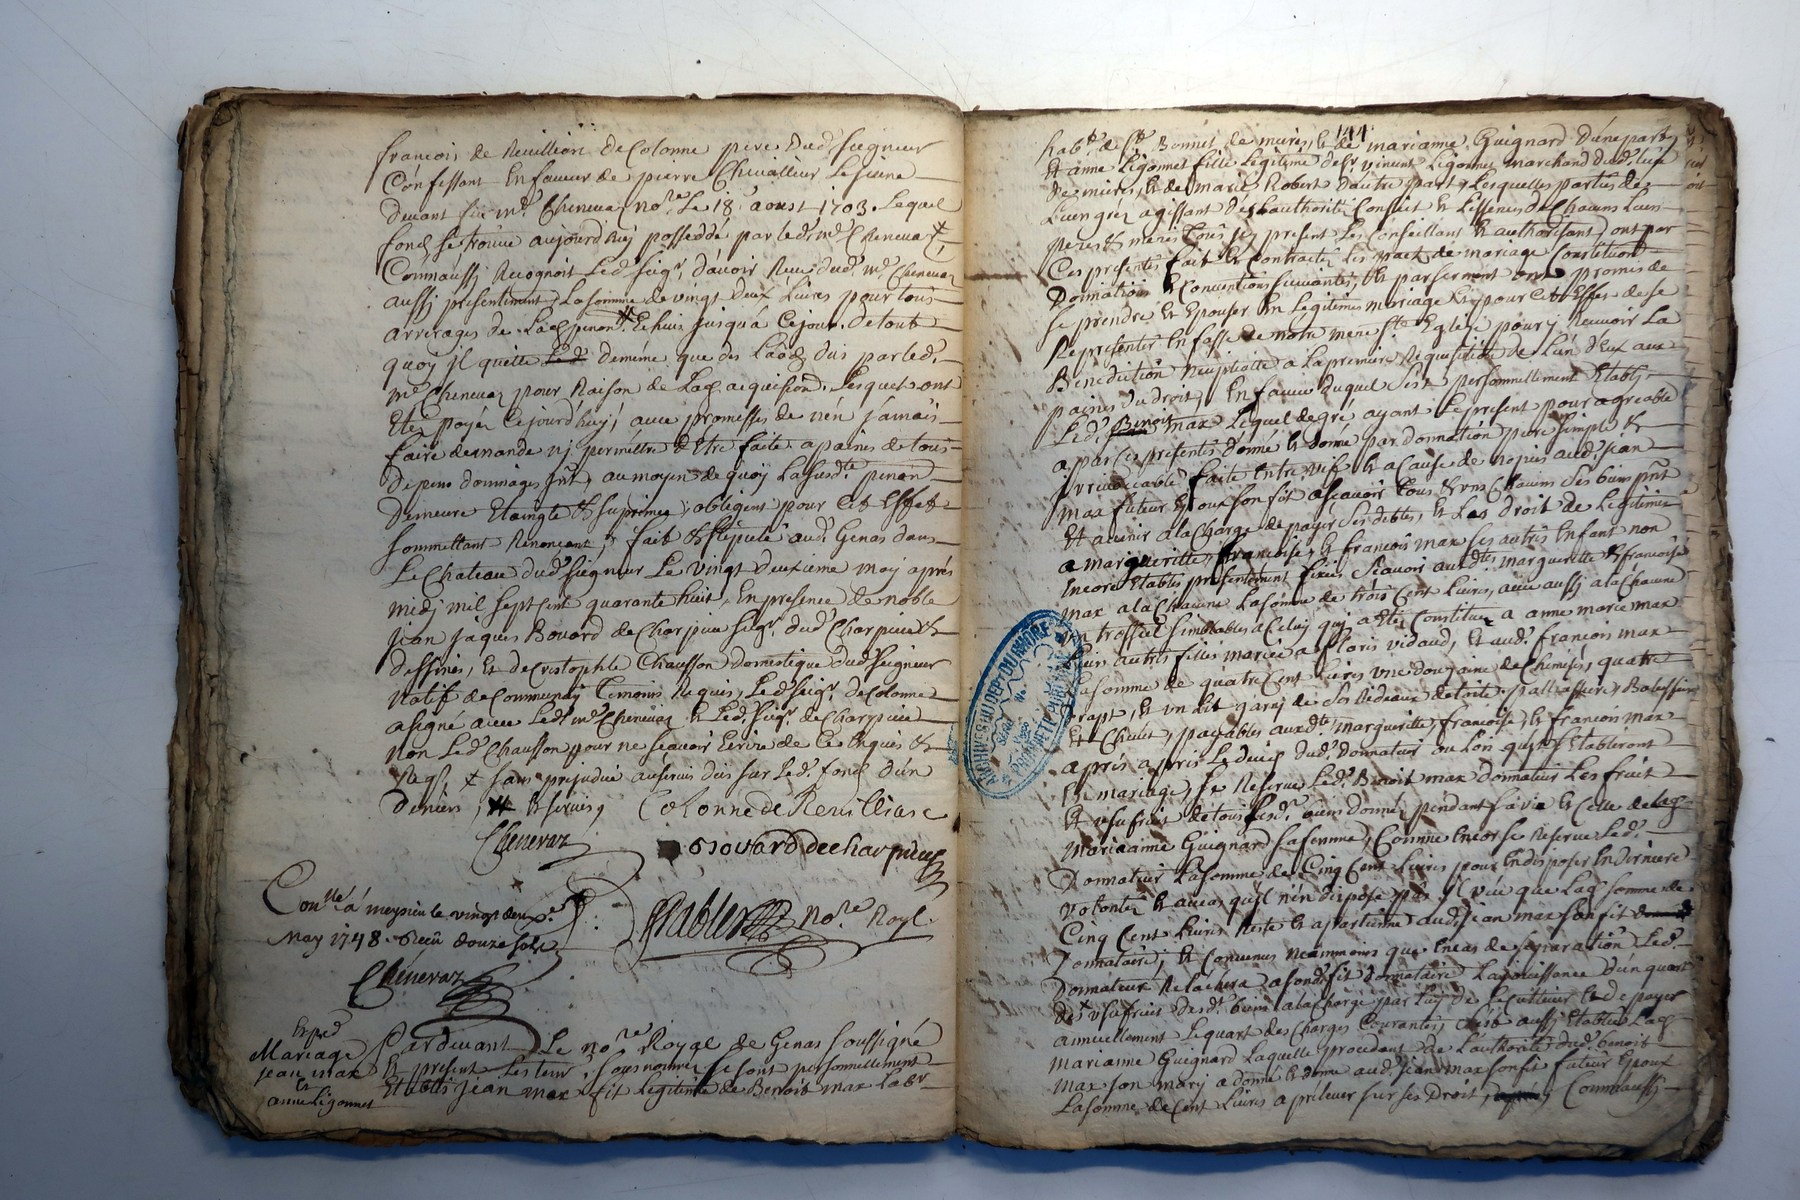 francois de Reuillion de Colonne pere dud. seigneur
Confessant En faveur de pierre Chivallieur Lesinne
devant feu me. Chenevaz nore. Le 18. aoust 1703. Lequel
fond se trouve aujourdhuj possedé par led. me. Chenevaz
Commaussj Recognoit Led. seigr. d'avoir Receu dud. me. Chenevaz
aussj presentiment, La somme de vingt deux Livres pour tous
arrerages de Lad. penon. Echeus jusqu'a Cejour. de tout
quoy jl quitte de méme que des Laods dus par led.
me. Chenevaz pour Raison de Lad. acquision. Lesquels ont
Etez payéz Cejourd'huj, avec promesses de n'en jamais
faire demande nj permettre d'Etre faite apaines de tous
depens dommages jnts. au moyen de quoy La susdte. penon
demeure Etaingte & suprimee, obligeant pour Cet Effet
sommettant Renoncant, fait & stipulé aud. Genas dans
Le Chateau dud. seigneur Le vingt deuxieme may aprés
midj mil sept cent quarante huit, En presence de noble
jean jaques Bovard de Charpieu seigr. dud. Charpieu &
dessines, Et de Cristophle Chausson domestique dud. seigneur
Natif de Communay Temoins Requis, Led. seigr. de Colonne
a signé avec Led. me. Chenevaz Et Led. seigr. de Charpieu
non Led. Chausson pour ne scavoir Ecrire de Ce Enquis &
Reqs. sans prejudice au servis dus sur Led. fond d'un
denier, & servis, Colonne de Reuilliasc
Chenevaz
Bovard de charpieu
Conllé. á meyzieu le vingt deuxe.
May 1748. Receu douze sols
nore. Royl.
Chenevaz
Expéd.
Mariage
jean max
Et
anne Ligonnet
Pardevant Le nore. Royal de Genas soussigné
& present Les tem. sous nommez se sont personnellement
Etablis jean max fit Legitime de Benoit max Labr.
144
habt. de St. Bonnet de mure, & de marianne Guignard d'une part,
Et anne Ligonnet fille Legitime de sr. vincent Ligonnet marchand dud. lieu
de mure, & de marie Robert d'autre part, Lesquelles parties de
Leur gréz agissant de Lauthorité Conseit & Lissence de Chacuns Leurs
peres & meres tous jcy present Les Conseillant & authorisant, ont par
Ces presentes fait & Contractéz Les pact de mariage Constitution
donnation & Conventions suivantes, & par serment ont promis de
se prendre & Epouser En Legitime mariage & pour Cet Effet de se
Representer En fasse de notre mere ste. Eglise pour y Recevoir La
Benediction Neuptialle a La premiere Requisition de L'un d'Eux aux
paines du droit, En faveur duquel s'est personnellement Etablj
Led. Benoit max Lequel de gré ayant Le present pour agreable
a par Ces presentes donné & donne par donnation pure simple &
jrrevocable faite Entre vifs & a Cause de nopces aud. jean
max futeur Epoux son fit ascavoir tous & uns Chacuns ses biens pnt
Et avenir a la Charge de payer ses debtes, & Les droit de Legitime
a margueritte, francoise, & francois max ses autres Enfant non
Encore Etablis presentement fixés scavoir auxdtes margueritte & francoise
max a la Chacune La somme de trois Cent Livres, avec aussj a la Chacune
un trossel semblables a Celuy quj a Eté Constitué a anne marie max
Leurs autres filles mariée a floris vidaud, Et aud. francois max
La somme de quatre Cent Livres une douzaine de Chemises, quatre
drapt, & un Lit garnj de ses Rideaux de toile,
Et Chalit, payables auxdts. margueritte, francoise, & francois max
apres apres Le deces dud. donnateur ou Lors quils s'Etabliront
En mariage, se Reserve Led. Benoit max donnateur Les fruit
Et usufruit de tous sesd. biens donnés pendant sa vie & Celle de Lad.
Marianne Guignard sa femme, Comme Encor se Reserve Led.
donnateur La somme de Cinq Cent Livres pour En disposer En derniere
volonté & aucas qu'jl n'En dispose pas jl veut que Lad. somme de
Cinq Cent Livres Reste & apartienne aud. jean max son fit
Donnataire, & Convenus Neammoins que En cas de separation Led.
Donnateur Relachera a sond. fit donnataire La jouissance d'un quart
des usufruit desd. biens a la Charge par luy de Le Cultiver & de payer
annuellement Le quart des Charges Courantes, S'est aussj Etablie Lad.
Marianne Guignard Laquelle procedant de L'authorité dud. benoit
max son marj a donné & donne aud. jean max son fit futur Epoux
La somme de Cent Livres a prélever sur ses Droit, Commaussj
ARCHIVES DU DEPT DU RHONE
PROPRIÉTÉ PUBLIQUE